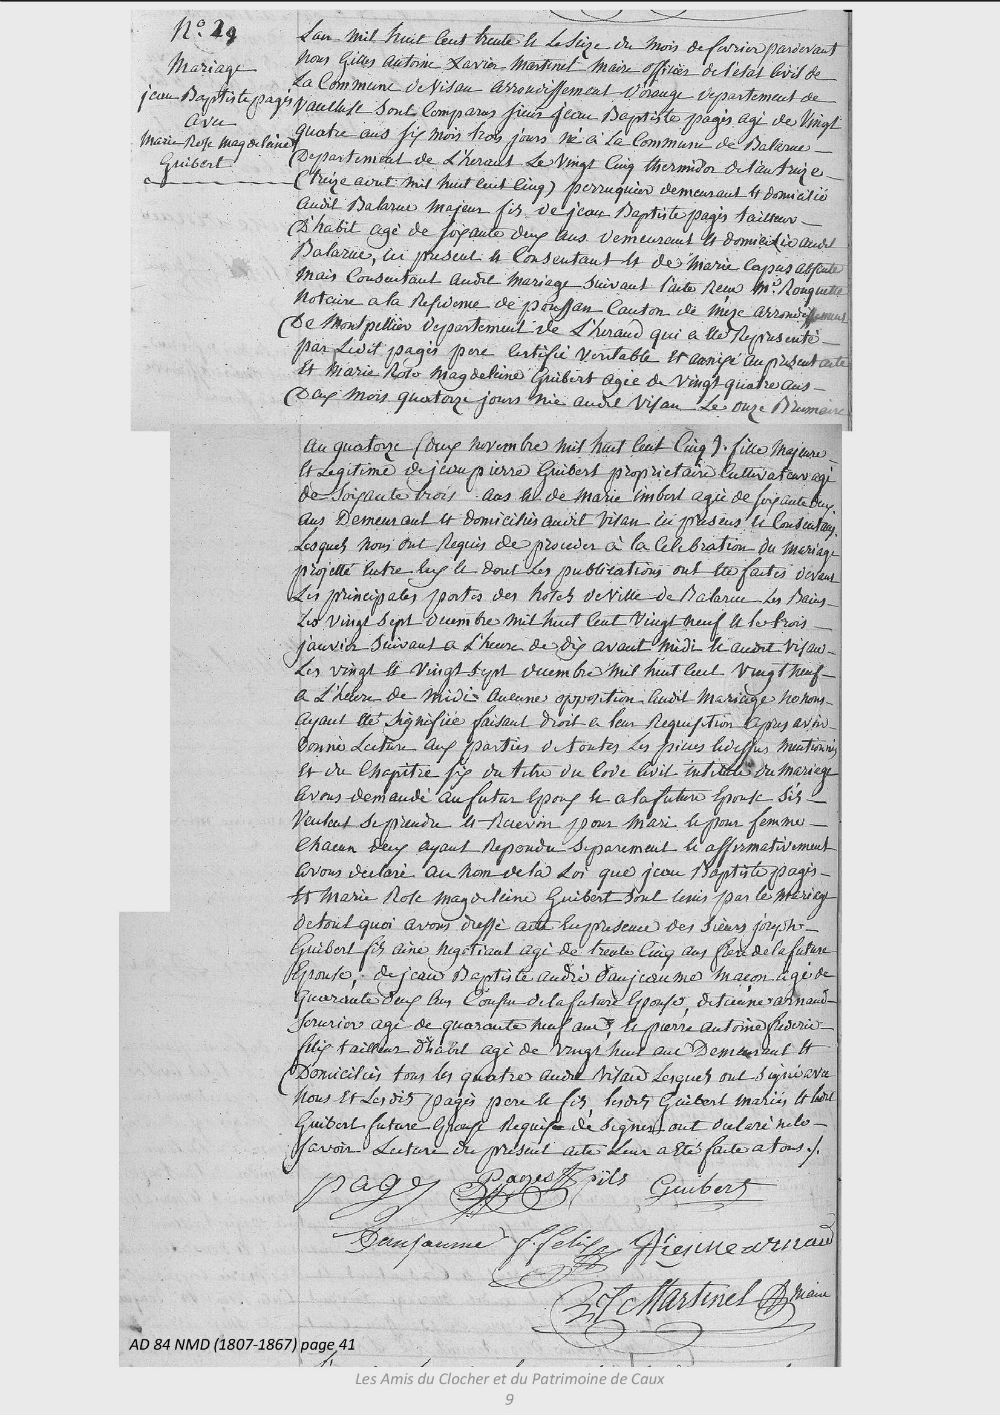 N.º 29
Mariage
jean Baptiste pagés
avec
Marie Rose magdeleine
Guibert
L'an mil huit cent trente et le seize du mois de fevrier pardevant
Nous Gilles antoine Xavier Martinel maire officier de l'état Civil de
La Commune de Visan arrondissement d'orange departement de
Vaucluse sont Comparus sieur jean Baptiste pagés agé de Vingt
quatre ans six mois trois jours né à La Commune de Balaruc
Departement de L'heraut Le Vingt Cinq thermidor de l'an treize
(treize aout mil huit cent Cinq) perruquier demeurant et domicilié
audit Balaruc majeur fils de jean Baptiste pagés tailleur
D'habit agé de soixante deux ans demeurant et domicilié audit
Balaruc, ici present et Consentant et de Marie Capus absente
mais Consentant audit mariage suivant l'acte Reçu m.º Rouquette
Notaire a la Residence de poussan Canton de mèze arrondissement
De Montpellier departement de L'heraud qui a été Representé
par Ledit pagés pere Certifié veritable et annexé au present acte
Et Marie Rose Magdeleine Guibert agée de Vingt quatre ans
Deux mois quatorze jours née audit Visan Le onze Brumaire
an quatorze (deux novembre mil huit Cent Cinq). fille majeure
et Legitime de jean pierre Guibert proprietaire Cultivateur agé
de Soixante trois ans et de Marie imbert agée de soixante deux
ans Demeurant et domiciliés audit Visan ici présens et Consentans,
Lesquels nous ont Requis de proceder à la Celebration du mariage
projetté Entre eux et dont Les publications ont été faites devant
Les principales portes des hotels de Ville de Balaruc Les Bains
Les Vingt Sept decembre mil huit Cent Vingt neuf et le trois
janvier Suivant a L'heure de dix avant midi et audit Visan
Les vingt et Vingt Sept decembre mil huit Cent Vingt neuf
a L'heure de midi Aucune opposition audit Mariage ne nous
ayant été Signifiée faisant droit a leur Requisition apres avoir
Donné Lecture aux parties de toutes Les pieces Cidessus Mentionnées
Et du Chapitre six du titre du Code Civil intitulé du Mariage
avons demandé au futur Epoux et a la future Epouse s'ils
Veulent se prendre et Recevoir pour mari et pour femme
Chacun d'eux ayant Repondu Separement et affirmativement
avons declaré au Nom de la Loi que jean Baptiste pagés
Et Marie Rose magdeleine Guibert sont unis par le mariage
de tout quoi avons dressé acte En presence des sieurs joseph
Guibert fils ainé negotiant agé de trente Cinq ans frere de la future
Epouse, de jean Baptiste andré Danjaume maçon agé de
Quarante deux ans Cousin de la future Epouse, d'etienne arnaud
Serurier agé de quarante neuf ans, et pierre antoine frederic
felix tailleur D'habit agé de Vingt huit ans Demeurant et
Domiciliés tous les quatre audit Visan Lesquels ont signé avec
Nous Et Lesdits pagés pere et fils, lesdits Guibert mariés et ladite
Guibert future Epouse Requise de signer ont declaré ne le
Savoir Lecture du present acte Leur a été faite a tous ./.
pages Pages fils Guibert
Danjaume f. felix Etienne arnaud
X Martinel Maire
AD 84 NMD (1807-1867) page 41
Les Amis du Clocher et du Patrimoine de Caux
9